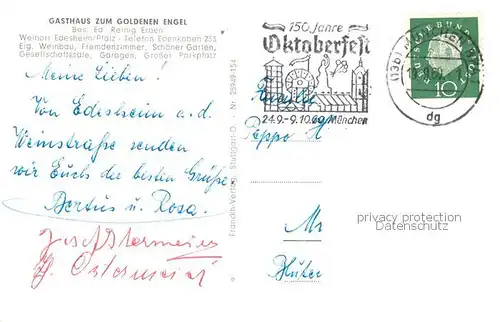 GASTHAUS ZUM GOLDENEN ENGEL
Bes. Ed. Reinig Erben
Weinort Edesheim/Pfalz - Telefon Edenkoben 253
Eig. Weinbau, Fremdenzimmer, Schöner Garten,
Gesellschaftssäle, Garagen, Großer Parkplatz
Meine Lieben!
Von Edesheim a. d.
Weinstraße senden
wir Euch die besten Grüße
Bertus u. Rosa.
Josef Ostermeier
Ostermeier
Franckh-Verlag, Stuttgart-O. - Nr. 25949-154
150 Jahre
Oktoberfest
24.9.-9.10.60 München
(13b) MÜNCHEN
dg
DEUTSCHE BUNDESPOST
10
Familie
Peppo H
privacy protection
Datenschutz